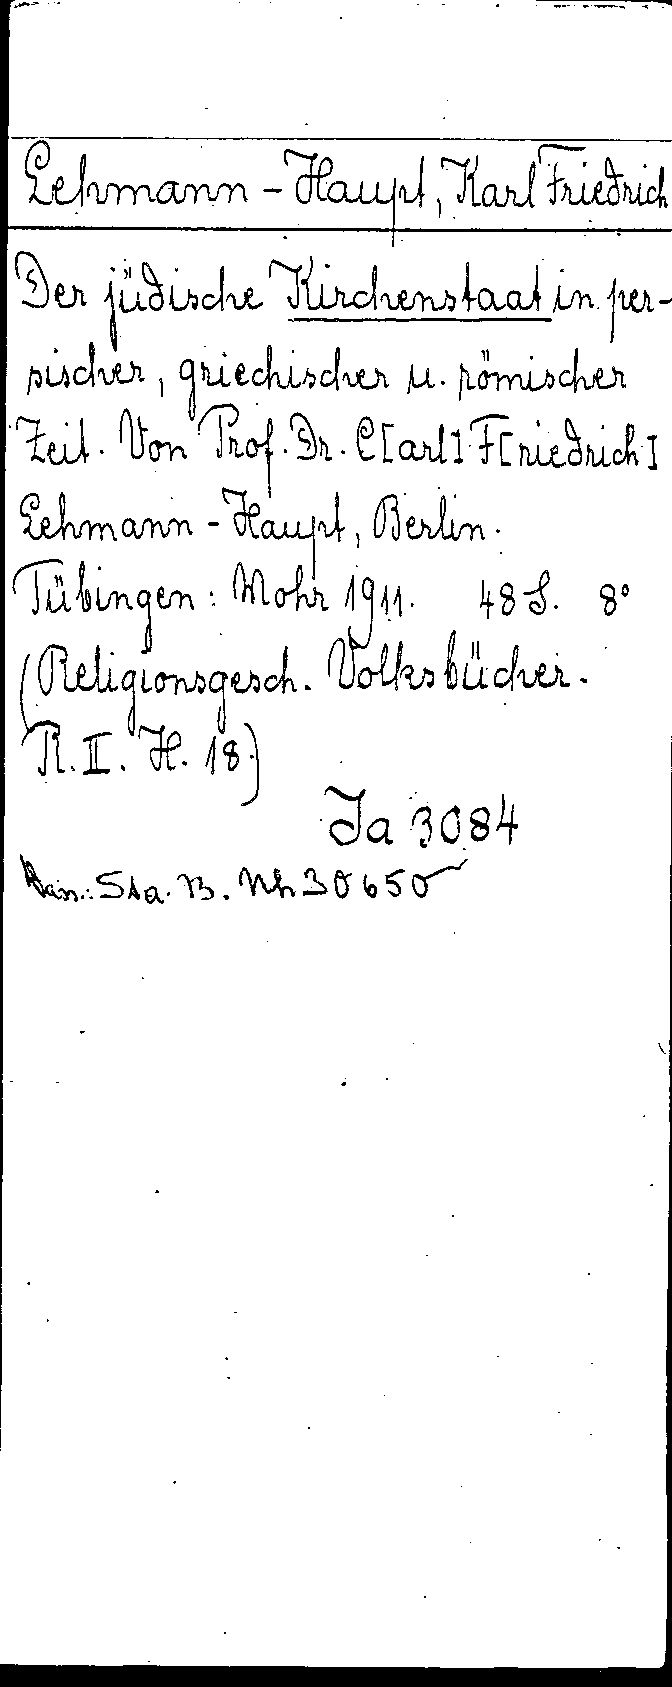 Lehmann-Haupt, Karl Friedrich
Der jüdische Kirchenstaat in per-
sischer, griechischer u. römischer
Zeit. Von Prof. Dr. C[arl] F[riedrich]
Lehmann-Haupt, Berlin.
Tübingen: Mohr 1911. 48 S. 8°
(Religionsgesch. Volksbücher.
R. II. H. 18)
Ja 3084
Sta. B. Nh 30650